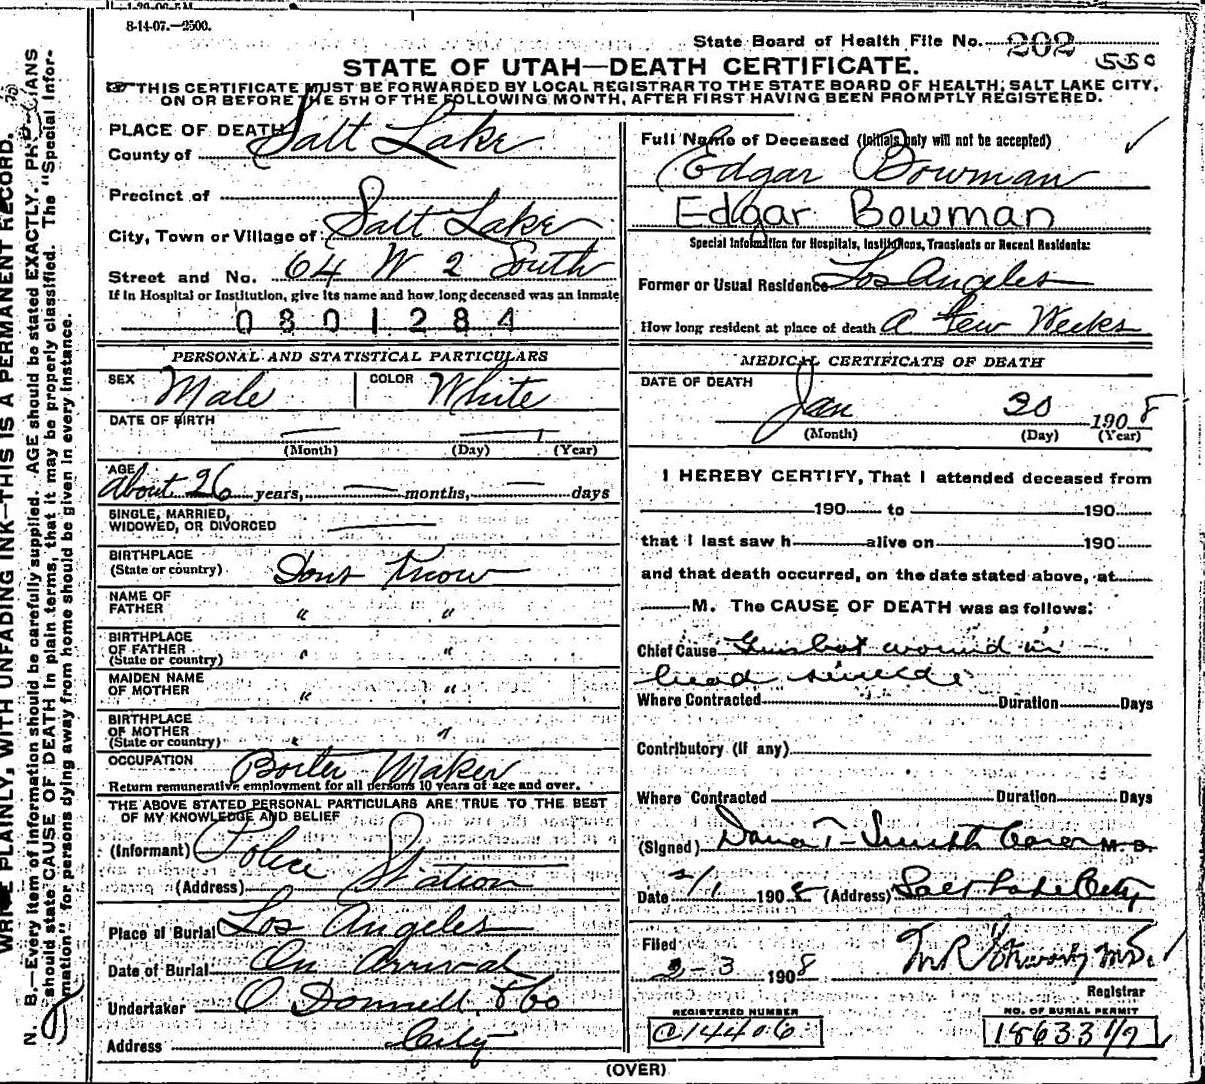 1-20-06-5M
8-14-07.—2500.
State Board of Health File No. 202
550
STATE OF UTAH—DEATH CERTIFICATE.
THIS CERTIFICATE MUST BE FORWARDED BY LOCAL REGISTRAR TO THE STATE BOARD OF HEALTH, SALT LAKE CITY,
ON OR BEFORE THE 5TH OF THE FOLLOWING MONTH, AFTER FIRST HAVING BEEN PROMPTLY REGISTERED.
PLACE OF DEATH
County of Salt Lake
Precinct of
City, Town or Village of Salt Lake
Street and No. 64 W 2 South
If in Hospital or Institution, give its name and how long deceased was an inmate
0801284
Full Name of Deceased (Initials only will not be accepted)
Edgar Bowman
Edgar Bowman
Special Information for Hospitals, Institutions, Transients or Recent Residents:
Former or Usual Residence Los Angeles
How long resident at place of death A few Weeks
PERSONAL AND STATISTICAL PARTICULARS
SEX Male COLOR White
DATE OF BIRTH
(Month) (Day) (Year)
AGE
About 26 years, months, days
SINGLE, MARRIED,
WIDOWED, OR DIVORCED
BIRTHPLACE
(State or country) Dont Know
NAME OF
FATHER " "
BIRTHPLACE
OF FATHER
(State or country) " "
MAIDEN NAME
OF MOTHER " "
BIRTHPLACE
OF MOTHER
(State or country) " "
OCCUPATION Boiler Maker
Return remunerative employment for all persons 10 years of age and over.
THE ABOVE STATED PERSONAL PARTICULARS ARE TRUE TO THE BEST
OF MY KNOWLEDGE AND BELIEF
(Informant) Police
(Address) Station
Place of Burial Los Angeles
Date of Burial On Arrival
Undertaker O Donnell & Co
Address City
MEDICAL CERTIFICATE OF DEATH
DATE OF DEATH
Jan 20 1908
(Month) (Day) (Year)
I HEREBY CERTIFY, That I attended deceased from
190 to 190
that I last saw h alive on 190
and that death occurred, on the date stated above, at
M. The CAUSE OF DEATH was as follows:
Chief Cause Gunshot wound in
head suicide
Where Contracted Duration Days
Contributory (if any)
Where Contracted Duration Days
(Signed) Dana T Smith Coroner M. D.
Date 2/1 1908 (Address) Salt Lake City
Filed
2-3 1908 M. D.
Registrar
REGISTERED NUMBER
C14406
NO. OF BURIAL PERMIT
18633 1/2
(OVER)
WRITE PLAINLY, WITH UNFADING INK—THIS IS A PERMANENT RECORD.
N. B.—Every item of information should be carefully supplied. AGE should be stated EXACTLY. PHYSICIANS
should state CAUSE OF DEATH in plain terms, that it may be properly classified. The "Special Infor-
mation" for persons dying away from home should be given in every instance.